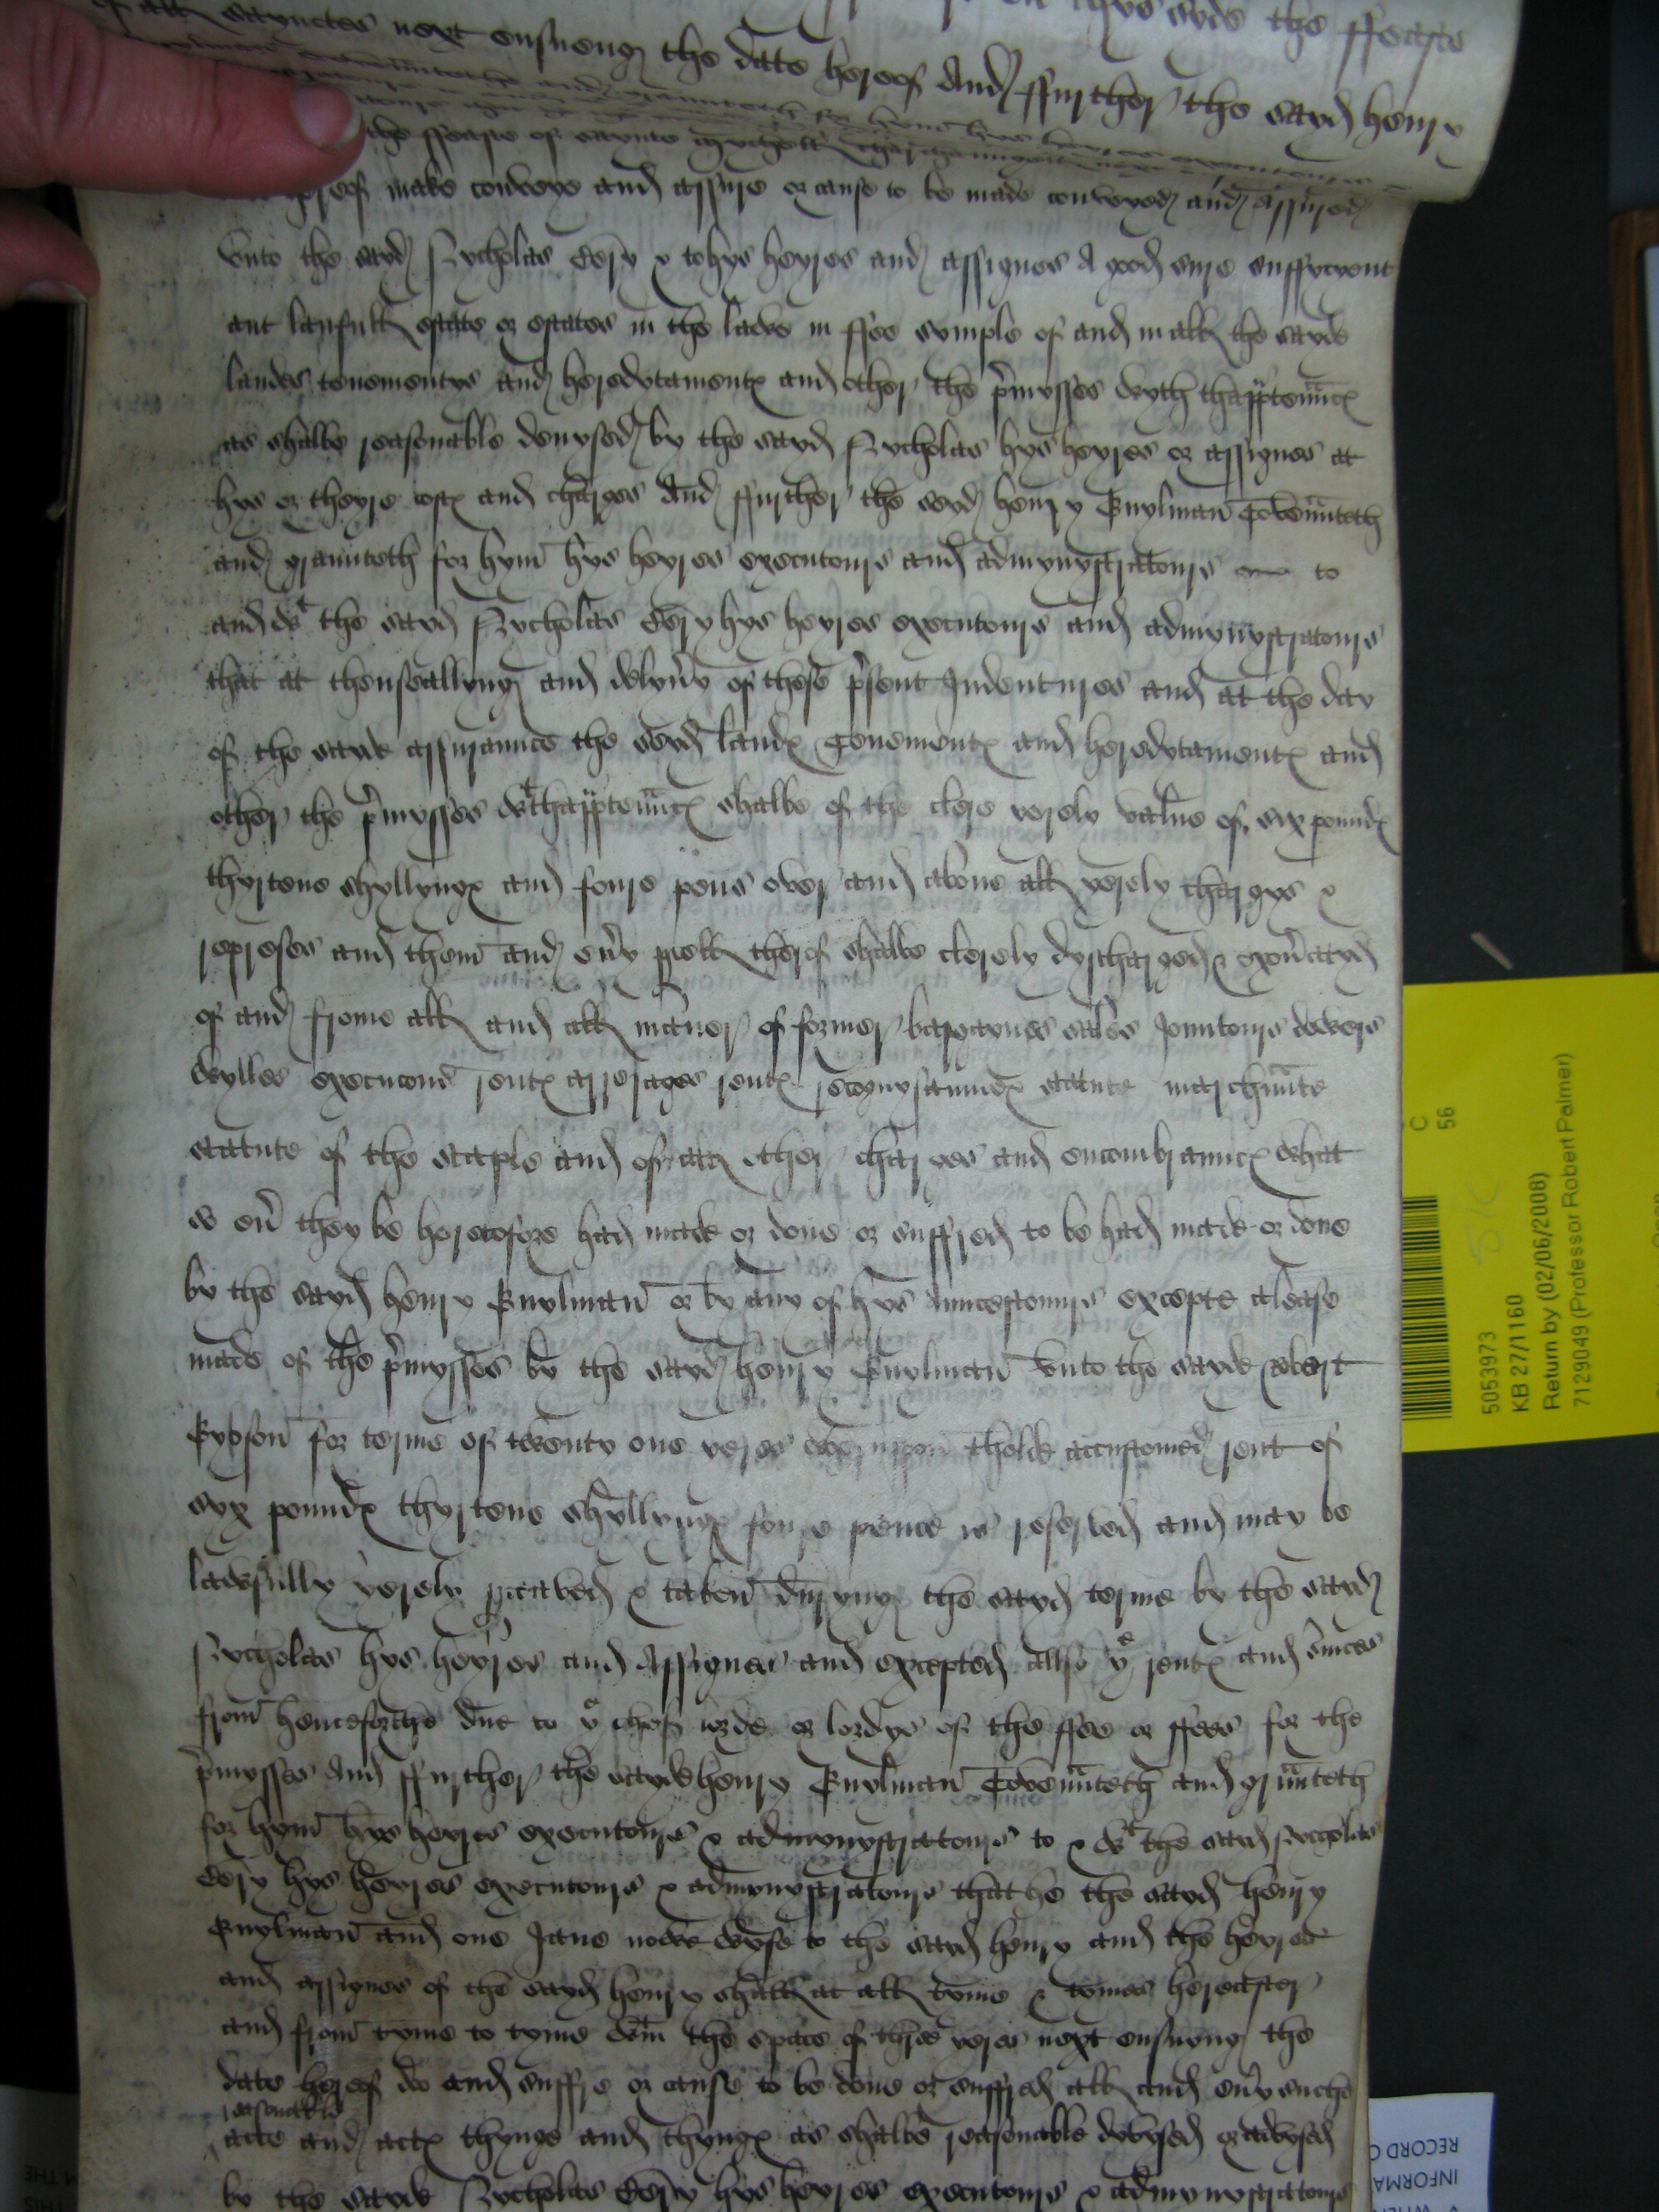 of all sayntes next ensueng the date hereof And ffurther the sayd henry
the ffeaste of saynte
hereof make conveye and assure or cause to be made conveyed and assured
vnto the sayd Nycholas Cory & to hys heyres and assignes A good sure suffycyent
ant laufull estate or estates in the lawe in ffee symple of and in all the sayde
landes tenementys and heredytamentes and other the p'mysses wyth thapp'ten'ncs
as shalbe reasonable devysed by the sayd Nycholas hys heyres or assignes at
hys or theyre costes and charges And ffurther the seyd henry Buylman Coven'nteth
and graunteth for hym hys heyres executours and admynystratours to
and wt the sayd Nycholas Cory hys heyres executours and admynystratours
that at thenseallyng and delyu'y of these p'sent Indentures and at the day
of the sayde assuraunce the seyd landes tenementes and heredytamentes and
other the p'mysses wt thapp'ten'ncs shalbe of the clere yerely value of six poundes
thyrtene shyllynges and foure pens over and aboue all yerely chargys &
reprises and them and eu'y p'cell therof shalbe clerely dyscharged & exon'atyd
of and frome all and all man'er of former bargaynes sales Joyntours dowers
wylles execucons rentes arrerages rentes recognysaunces statute marchante
statute of the staple and of all other charges and encombrauncs what
so eu' they be heretofore had made or done or suffred to be had made or done
by the sayd henry Buylman or by any of hys Auncestours excepte a lease
made of the p'mysses by the sayd henry Buylman vnto the sayde Robert
Gybson for terme of twenty one yeres wheruppon tholde accustomed rent of
syx poundes thyrtene shyllynges foure pence is reserved and may be
lawfully yerely p'ceaved & taken duryng the sayd terme by the sayd
Nycholas hys heyres and Assignes and excepted allso ye rentes and s'uices
from henceforthe due to ye chef lorde or lordys of the ffee or ffees for the
p'mysses And ffurther the sayde henry Buylman Coven'nteth and gr'nteth
for hym hys heyres executours & admynystratours to & wt the sayd Nycholas
Cory hys heyres executours & admynystratours that he the sayd henry
Buylman and one Jane nowe wyfe to the sayd henry and the heyres
and assignes of the sayd henry shall at all tyme & tymes hereafter
and from tyme to tyme wtin the space of thre yeres next ensueng the
date hereof do and suffre or cause to be done or suffred all and eu'y suche
reasonable
acte and actes thynge and thynges as shalbe reasonable devysed or advysed
by the sayde Nycholas Cory hys heyres executours & admynystratours
C
56
5053973
KB 27/1160
Return by (02/06/2008)
7129049 (Professor Robert Palmer)
RECORD
INFORMA